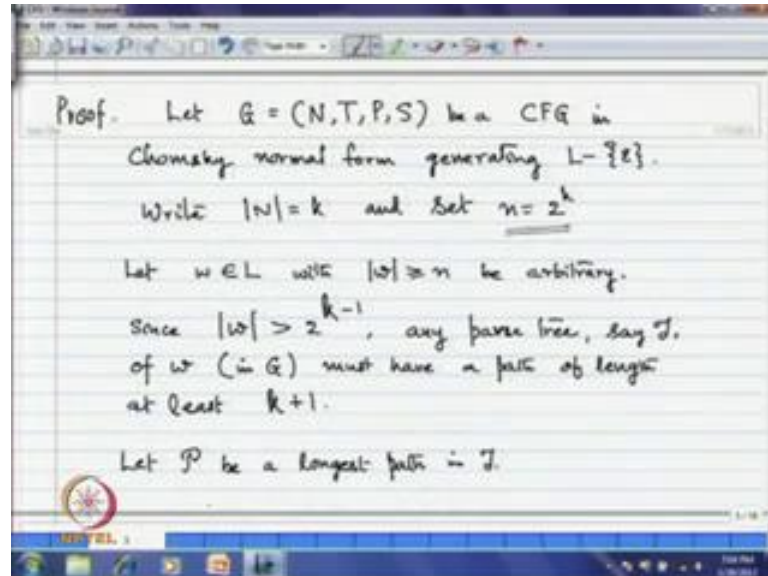 Proof. Let G = (N,T,P,S) be a CFG in
Chomsky normal form generating L-{ε}.
Write |N|=k and set n=2^k
Let w ∈ L with |w| ≥ n be arbitrary.
Since |w| > 2^{k-1}, any parse tree, say T,
of w (in G) must have a path of length
at least k+1.
Let P be a longest path in T.
NPTEL